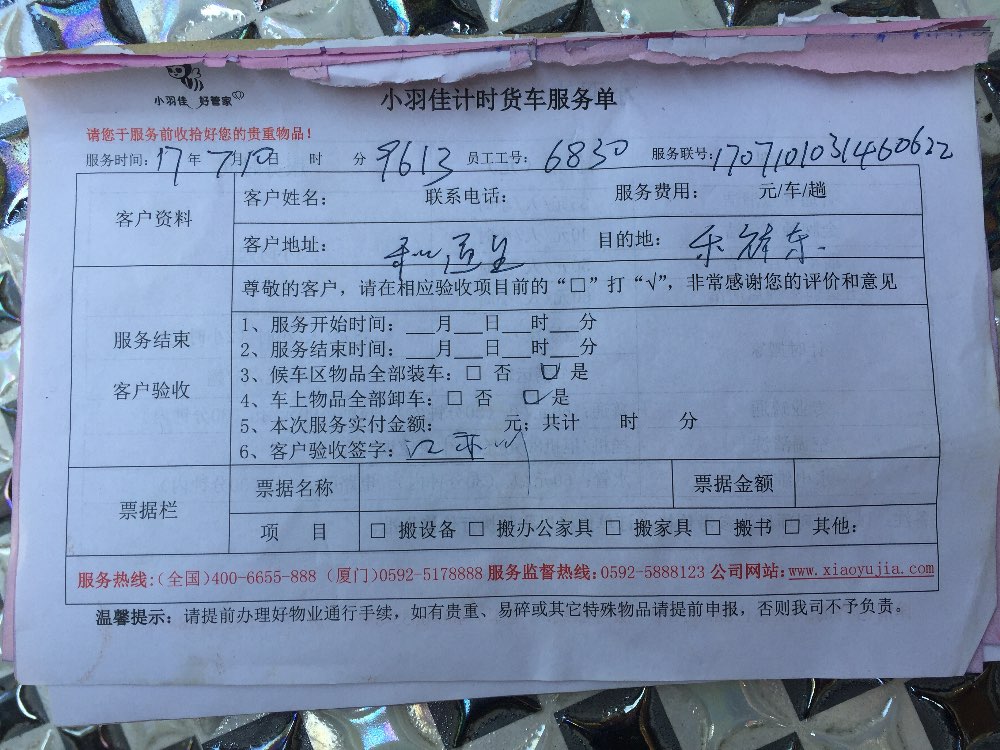 小羽佳 好管家
小羽佳计时货车服务单
请您于服务前收拾好您的贵重物品！
服务时间：17年7月10日 时 分 9613 员工工号：6830 服务联号：1707101031460622
客户资料
客户姓名： 联系电话： 服务费用： 元/车/趟
客户地址： 目的地：
尊敬的客户，请在相应验收项目前的“□”打“√”，非常感谢您的评价和意见
服务结束
客户验收
1、服务开始时间：___月___日___时___分
2、服务结束时间：___月___日___时___分
3、候车区物品全部装车：□ 否 ☑ 是
4、车上物品全部卸车：□ 否 ☑ 是
5、本次服务实付金额： 元；共计 时 分
6、客户验收签字：
票据栏
票据名称 票据金额
项 目 □ 搬设备 □ 搬办公家具 □ 搬家具 □ 搬书 □ 其他：
服务热线：(全国)400-6655-888 (厦门)0592-5178888 服务监督热线：0592-5888123 公司网站：www.xiaoyujia.com
温馨提示：请提前办理好物业通行手续，如有贵重、易碎或其它特殊物品请提前申报，否则我司不予负责。